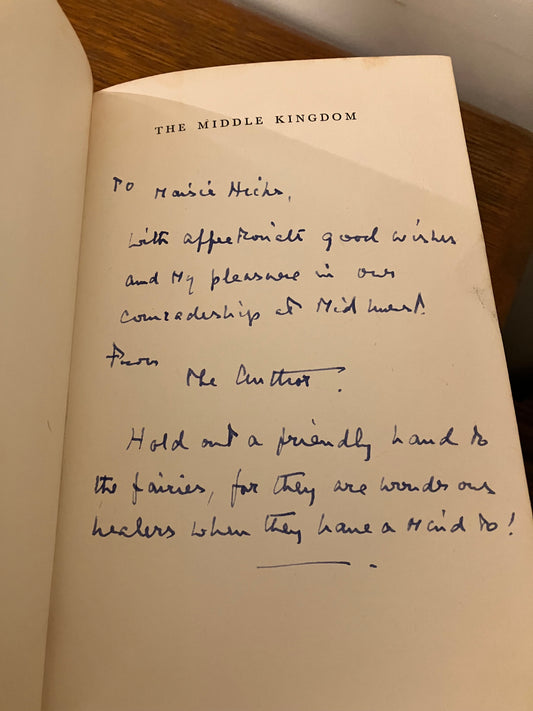 THE MIDDLE KINGDOM
To Maisie Hicks,
with affectionate good wishes
and my pleasure in our
comradeship at Midhurst.
From
The Author.
Hold out a friendly hand to
the fairies, for they are wonderous
healers when they have a mind to!